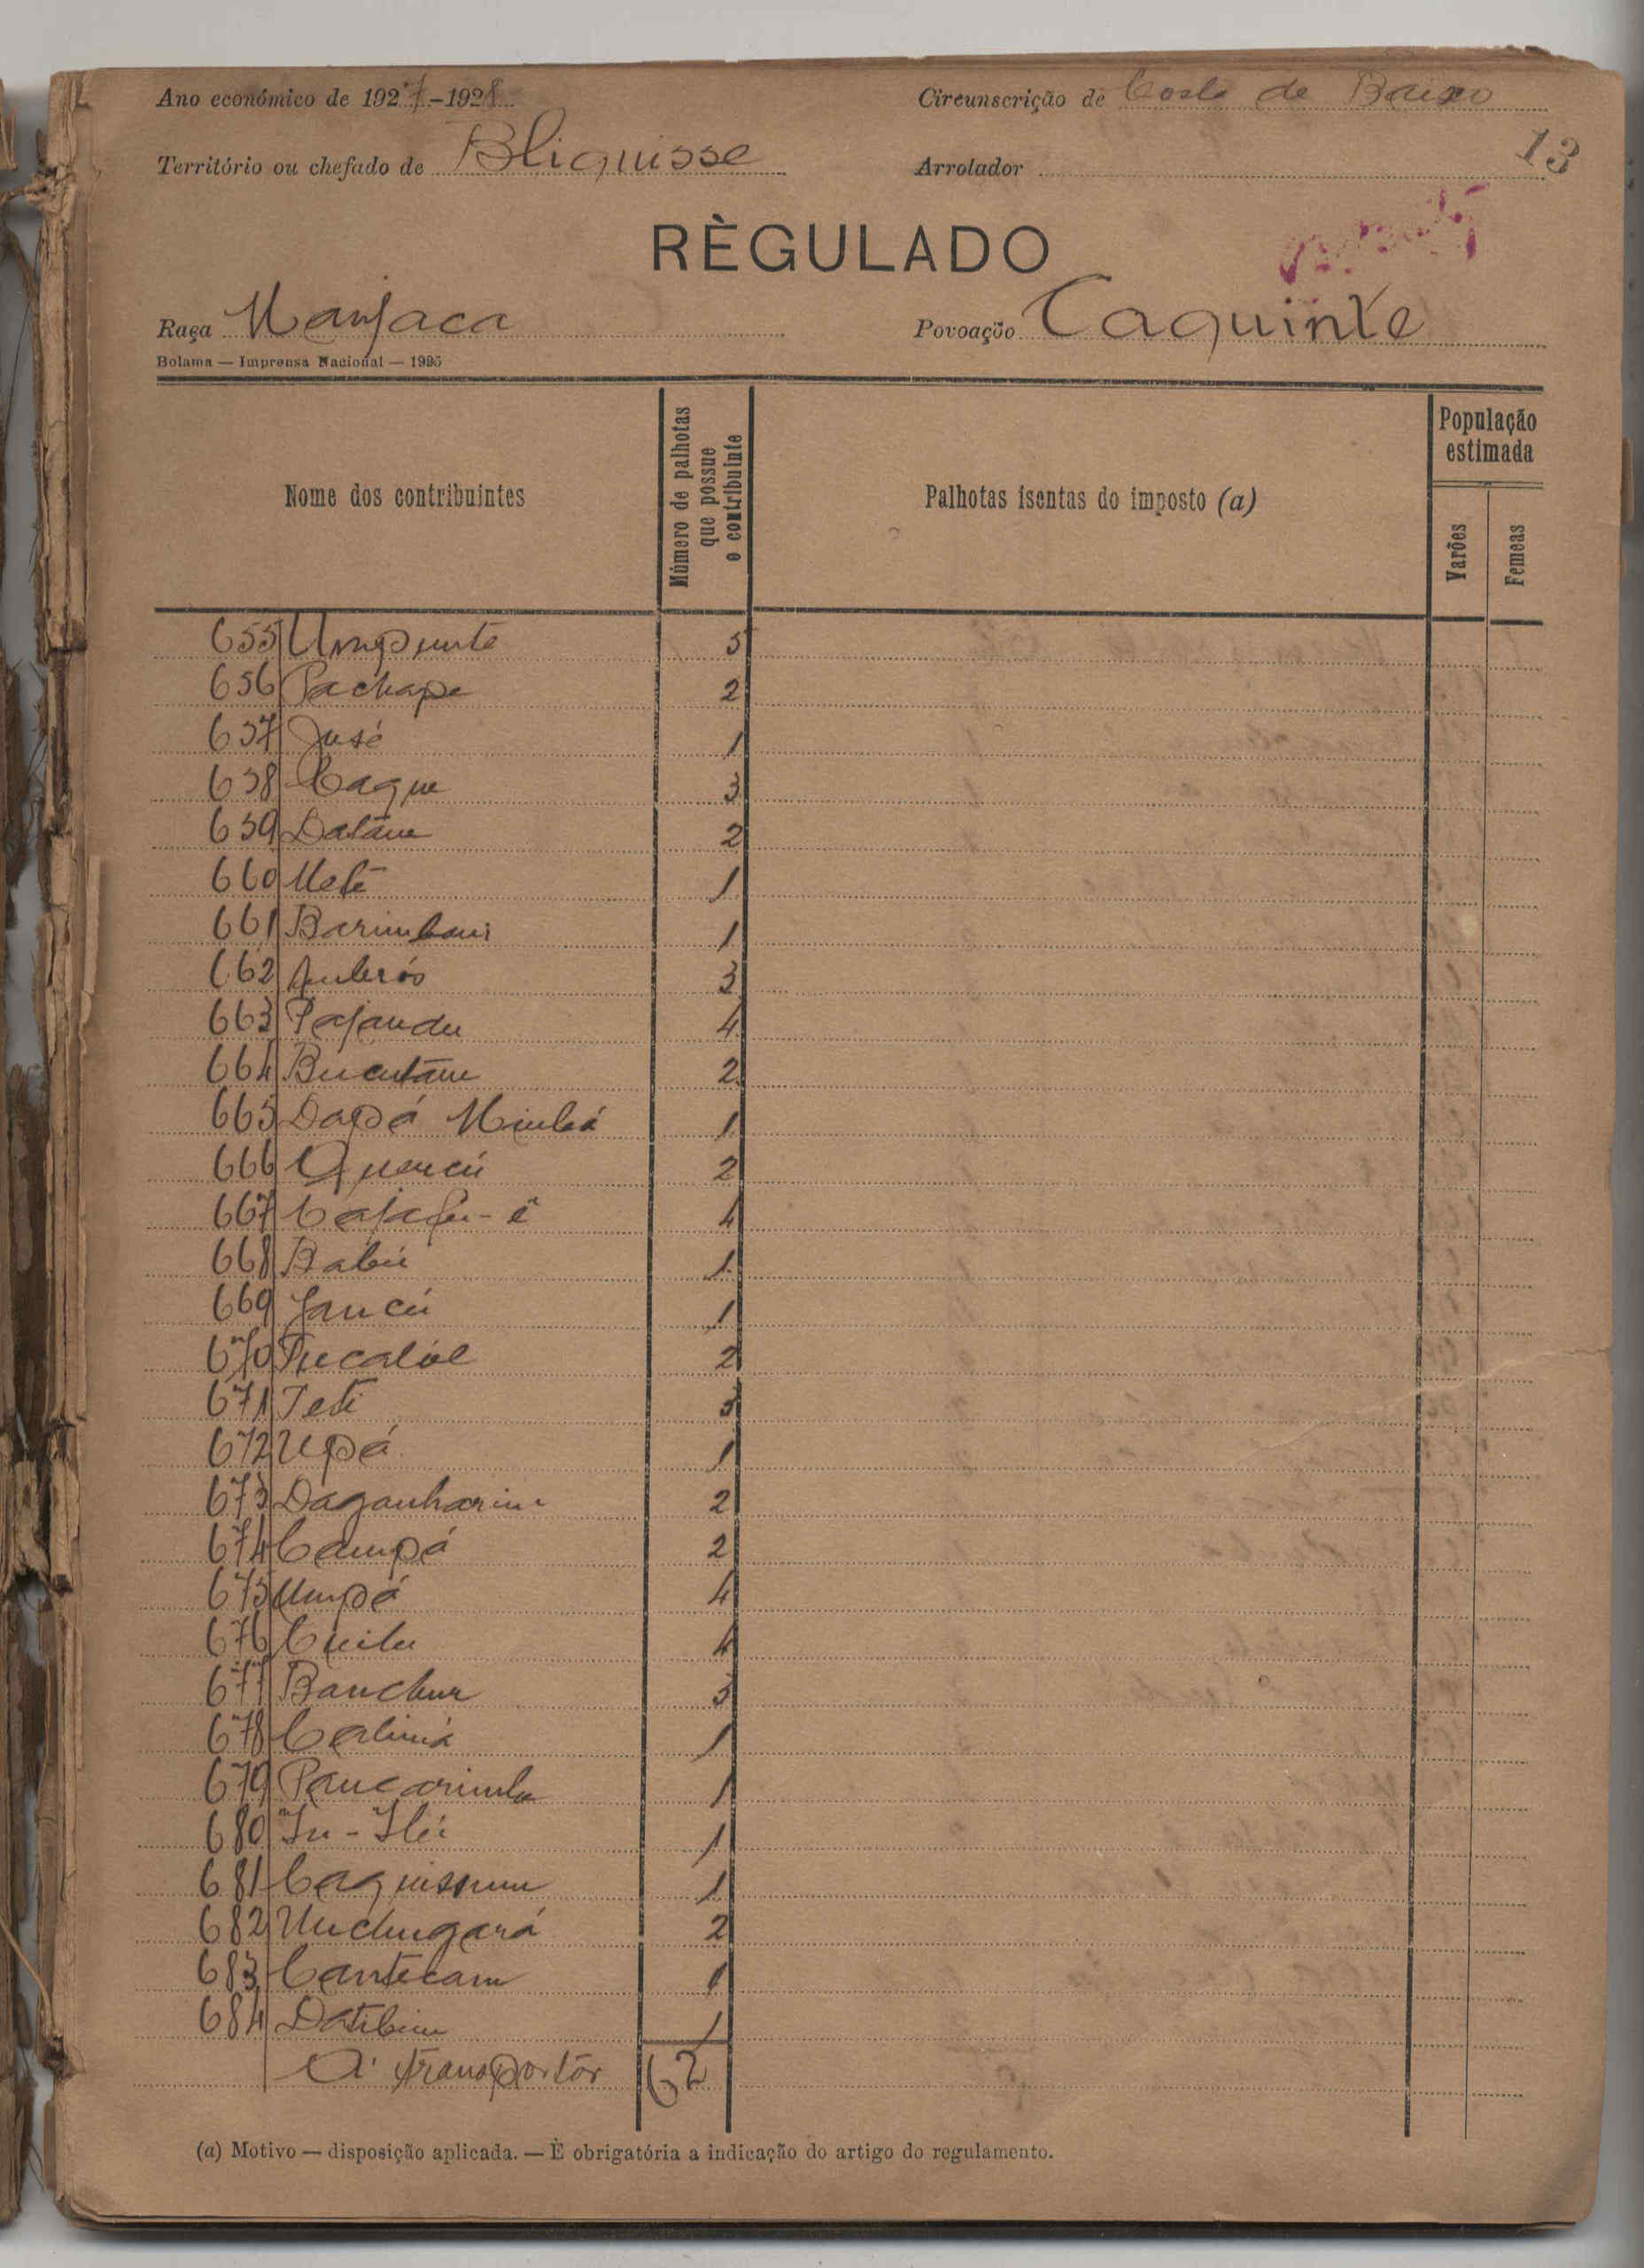 Ano económico de 1927-1928
Circunscrição de Costa de Baixo
13
Território ou chefado de Bliquisse
Arrolador
RÈGULADO
Raça Manjaca
Povoação Caquinte
Bolama — Imprensa Nacional — 1925
Nome dos contribuintes
Número de palhotas que possue o contribuinte
Palhotas isentas do imposto (a)
População estimada
Varões
Femeas
655 Umpunte 5
656 Pachape 2
657 José 1
658 Caque 3
659 Datâm 2
660 1
661 1
662 3
663 Pajandu 4
664 Bucutãm 2
665 Dapá 1
666 Quencú 2
667 4
668 Babú 1
669 Jancú 1
670 Pucalól 2
671 Teti 3
672 Upá 1
673 2
674 Campá 2
675 Umpá 4
676 Cuilu 4
677 Banchur 3
678 1
679 Pancarimba 1
680 1
681 1
682 Unchugará 2
683 Cantecam 1
684 Datibim 1
A transportar 62
(a) Motivo — disposição aplicada. — È obrigatória a indicação do artigo do regulamento.